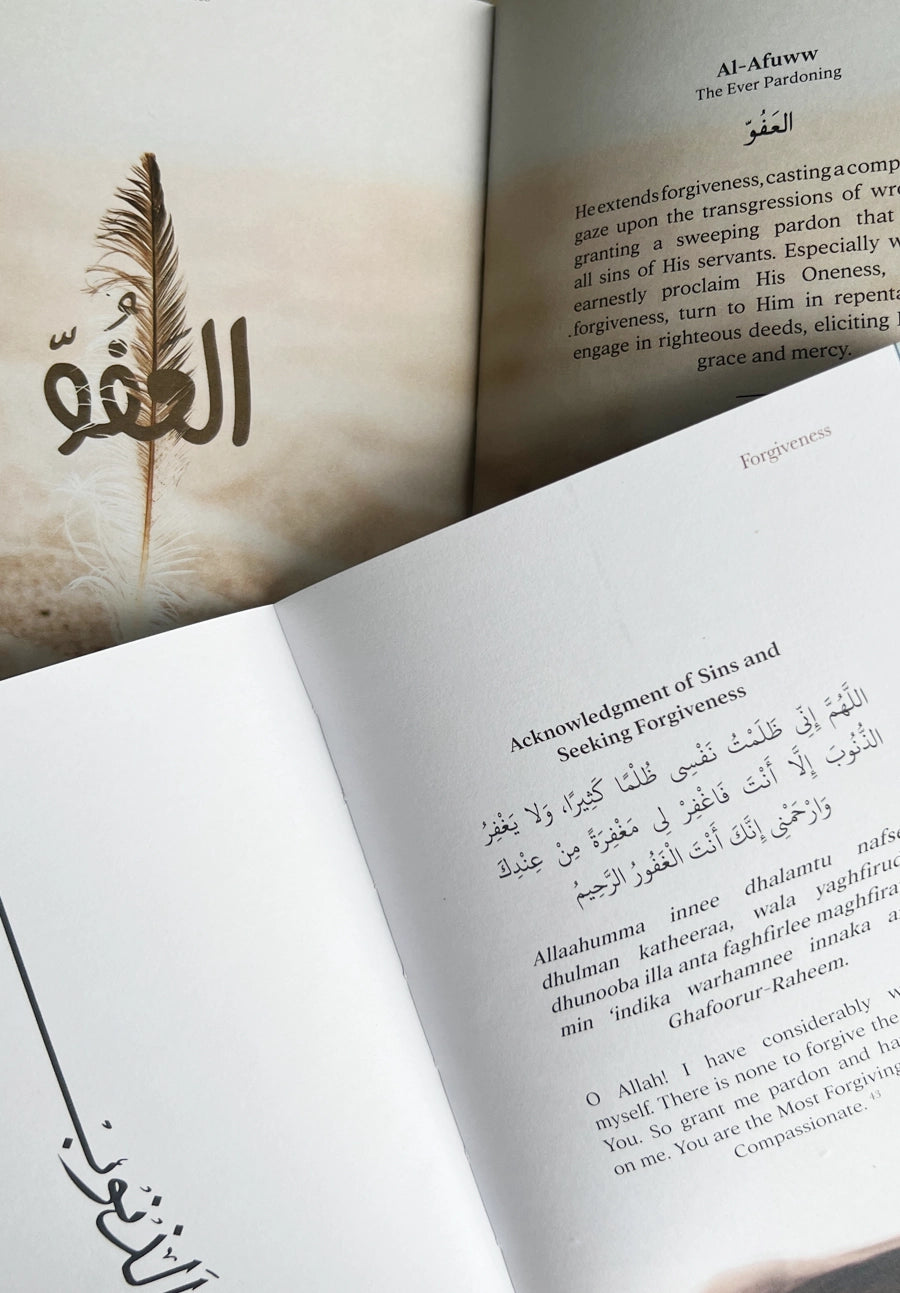 العفوّ
Al-Afuww
The Ever Pardoning
العَفُوّ
He extends forgiveness, casting a comp
gaze upon the transgressions of wro
granting a sweeping pardon that
all sins of His servants. Especially w
earnestly proclaim His Oneness,
.forgiveness, turn to Him in repenta
engage in righteous deeds, eliciting
grace and mercy.
Forgiveness
Acknowledgment of Sins and
Seeking Forgiveness
اللَّهُمَّ إِنِّي ظَلَمْتُ نَفْسِي ظُلْمًا كَثِيرًا، وَلا يَغْفِرُ
الذُّنُوبَ إِلَّا أَنْتَ فَاغْفِرْ لِي مَغْفِرَةً مِنْ عِنْدِكَ
وَارْحَمْنِي إِنَّكَ أَنْتَ الْغَفُورُ الرَّحِيمُ
Allaahumma innee dhalamtu nafse
dhulman katheeraa, wala yaghfirud
dhunooba illa anta faghfirlee maghfira
min ‘indika warhamnee innaka a
Ghafoorur-Raheem.
O Allah! I have considerably w
myself. There is none to forgive the
You. So grant me pardon and ha
on me. You are the Most Forgiving
Compassionate. 43
الذنوب